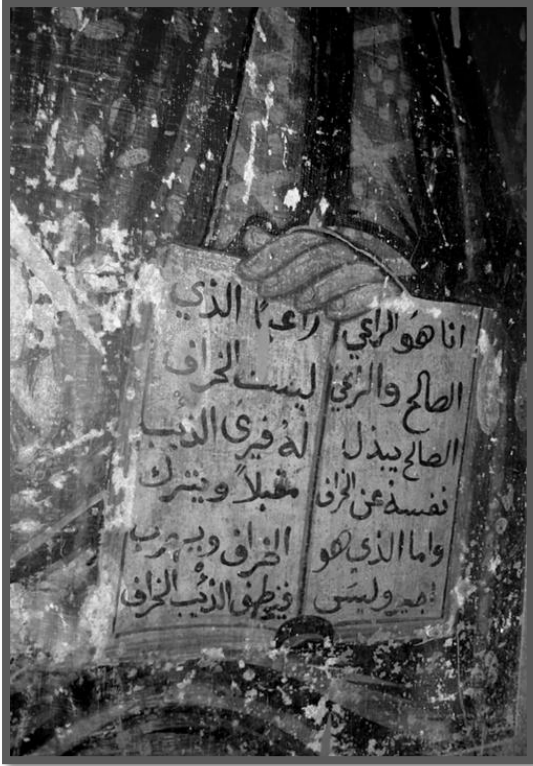 انا هو الراعي
الصالح والراعي
الصالح يبذل
نفسه عن الخراف
واما الذي هو
اجير وليس
راعيًا الذي
ليست الخراف
لهُ فيرى الذئب
مقبلاً ويترك
الخراف ويهرب
فيخطف الذئب الخراف